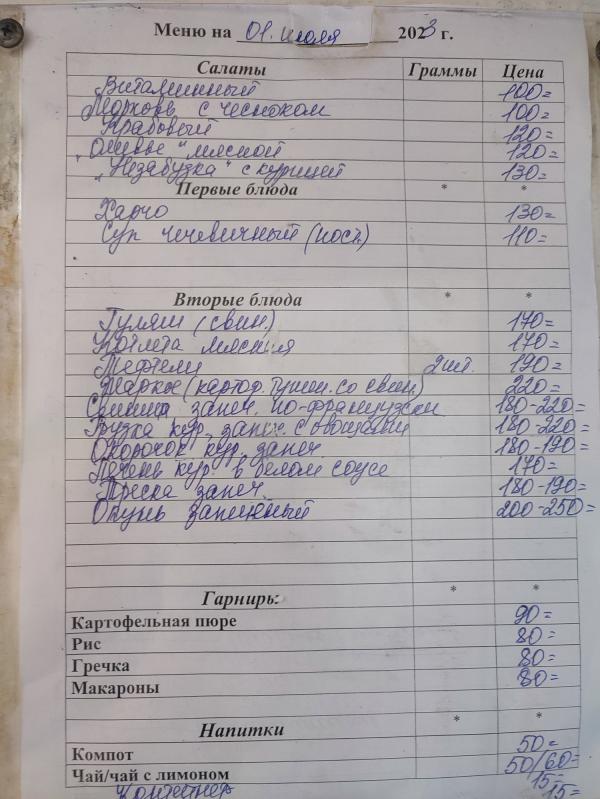 Меню на 01. июля 2023 г.
Салаты Граммы Цена
Витаминный 100=
Морковь с чесноком 100=
Крабовый 120=
"Оливье" мясной 120=
"Незабудка" с курицей 130=
Первые блюда * *
Харчо 130=
Суп чечевичный (пост.) 110=
Вторые блюда * *
Гуляш (свин.) 170=
Котлета мясная 170=
Тефтели 2шт. 190=
Жаркое (картоф. тушен. со свин) 220=
Свинина запеч. по-французски 180-220=
Грудка кур. запеч. с овощами 180-220=
Окорочок кур. запеч. 180-190=
Печень кур. в белом соусе 170=
Треска запеч. 180-190=
Окунь запечёный 200-250=
Гарниры: * *
Картофельная пюре 90=
Рис 80=
Гречка 80=
Макароны 80=
Напитки * *
Компот 50=
Чай/чай с лимоном 50/60=
15=
Контейнер 15=